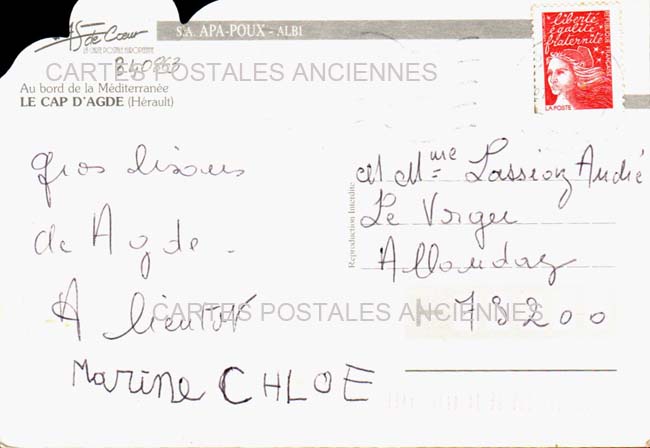 As de Cœur
LA CARTE POSTALE EUROPEENNE
S.A. APA-POUX - ALBI
liberté
égalité
fraternité
LA POSTE
CARTES POSTALES ANCIENNES
Au bord de la Méditerranée
LE CAP D'AGDE (Hérault)
gros bisous
de Agde -
A bientôt
Marine CHLOE
Reproduction Interdite
M Mme Lassiaz André
Le Verger
Allondaz
73200
CARTES POSTALES ANCIENNES